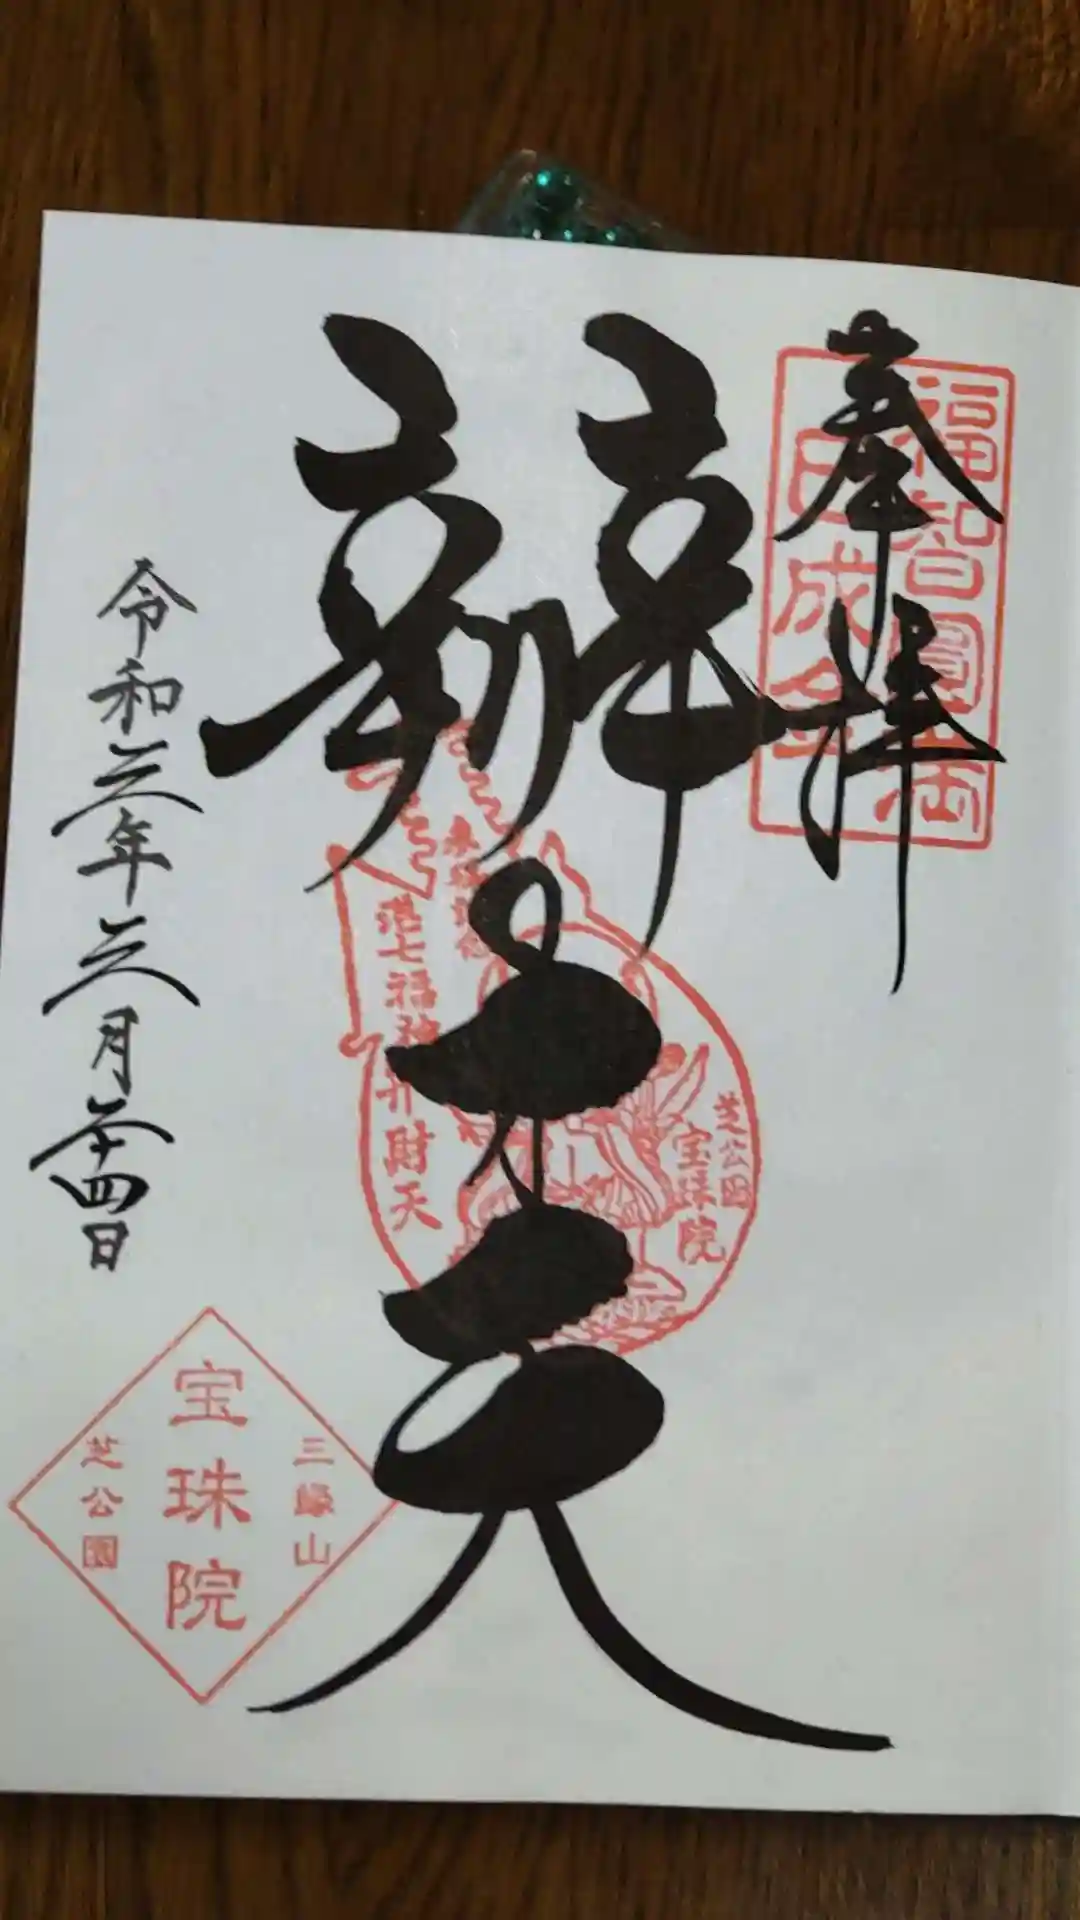 奉拝
福智圓満
日成金
辨才天
港七福神弁財天
芝公園
宝珠院
令和三年三月二十四日
三縁山
宝珠院
芝公園